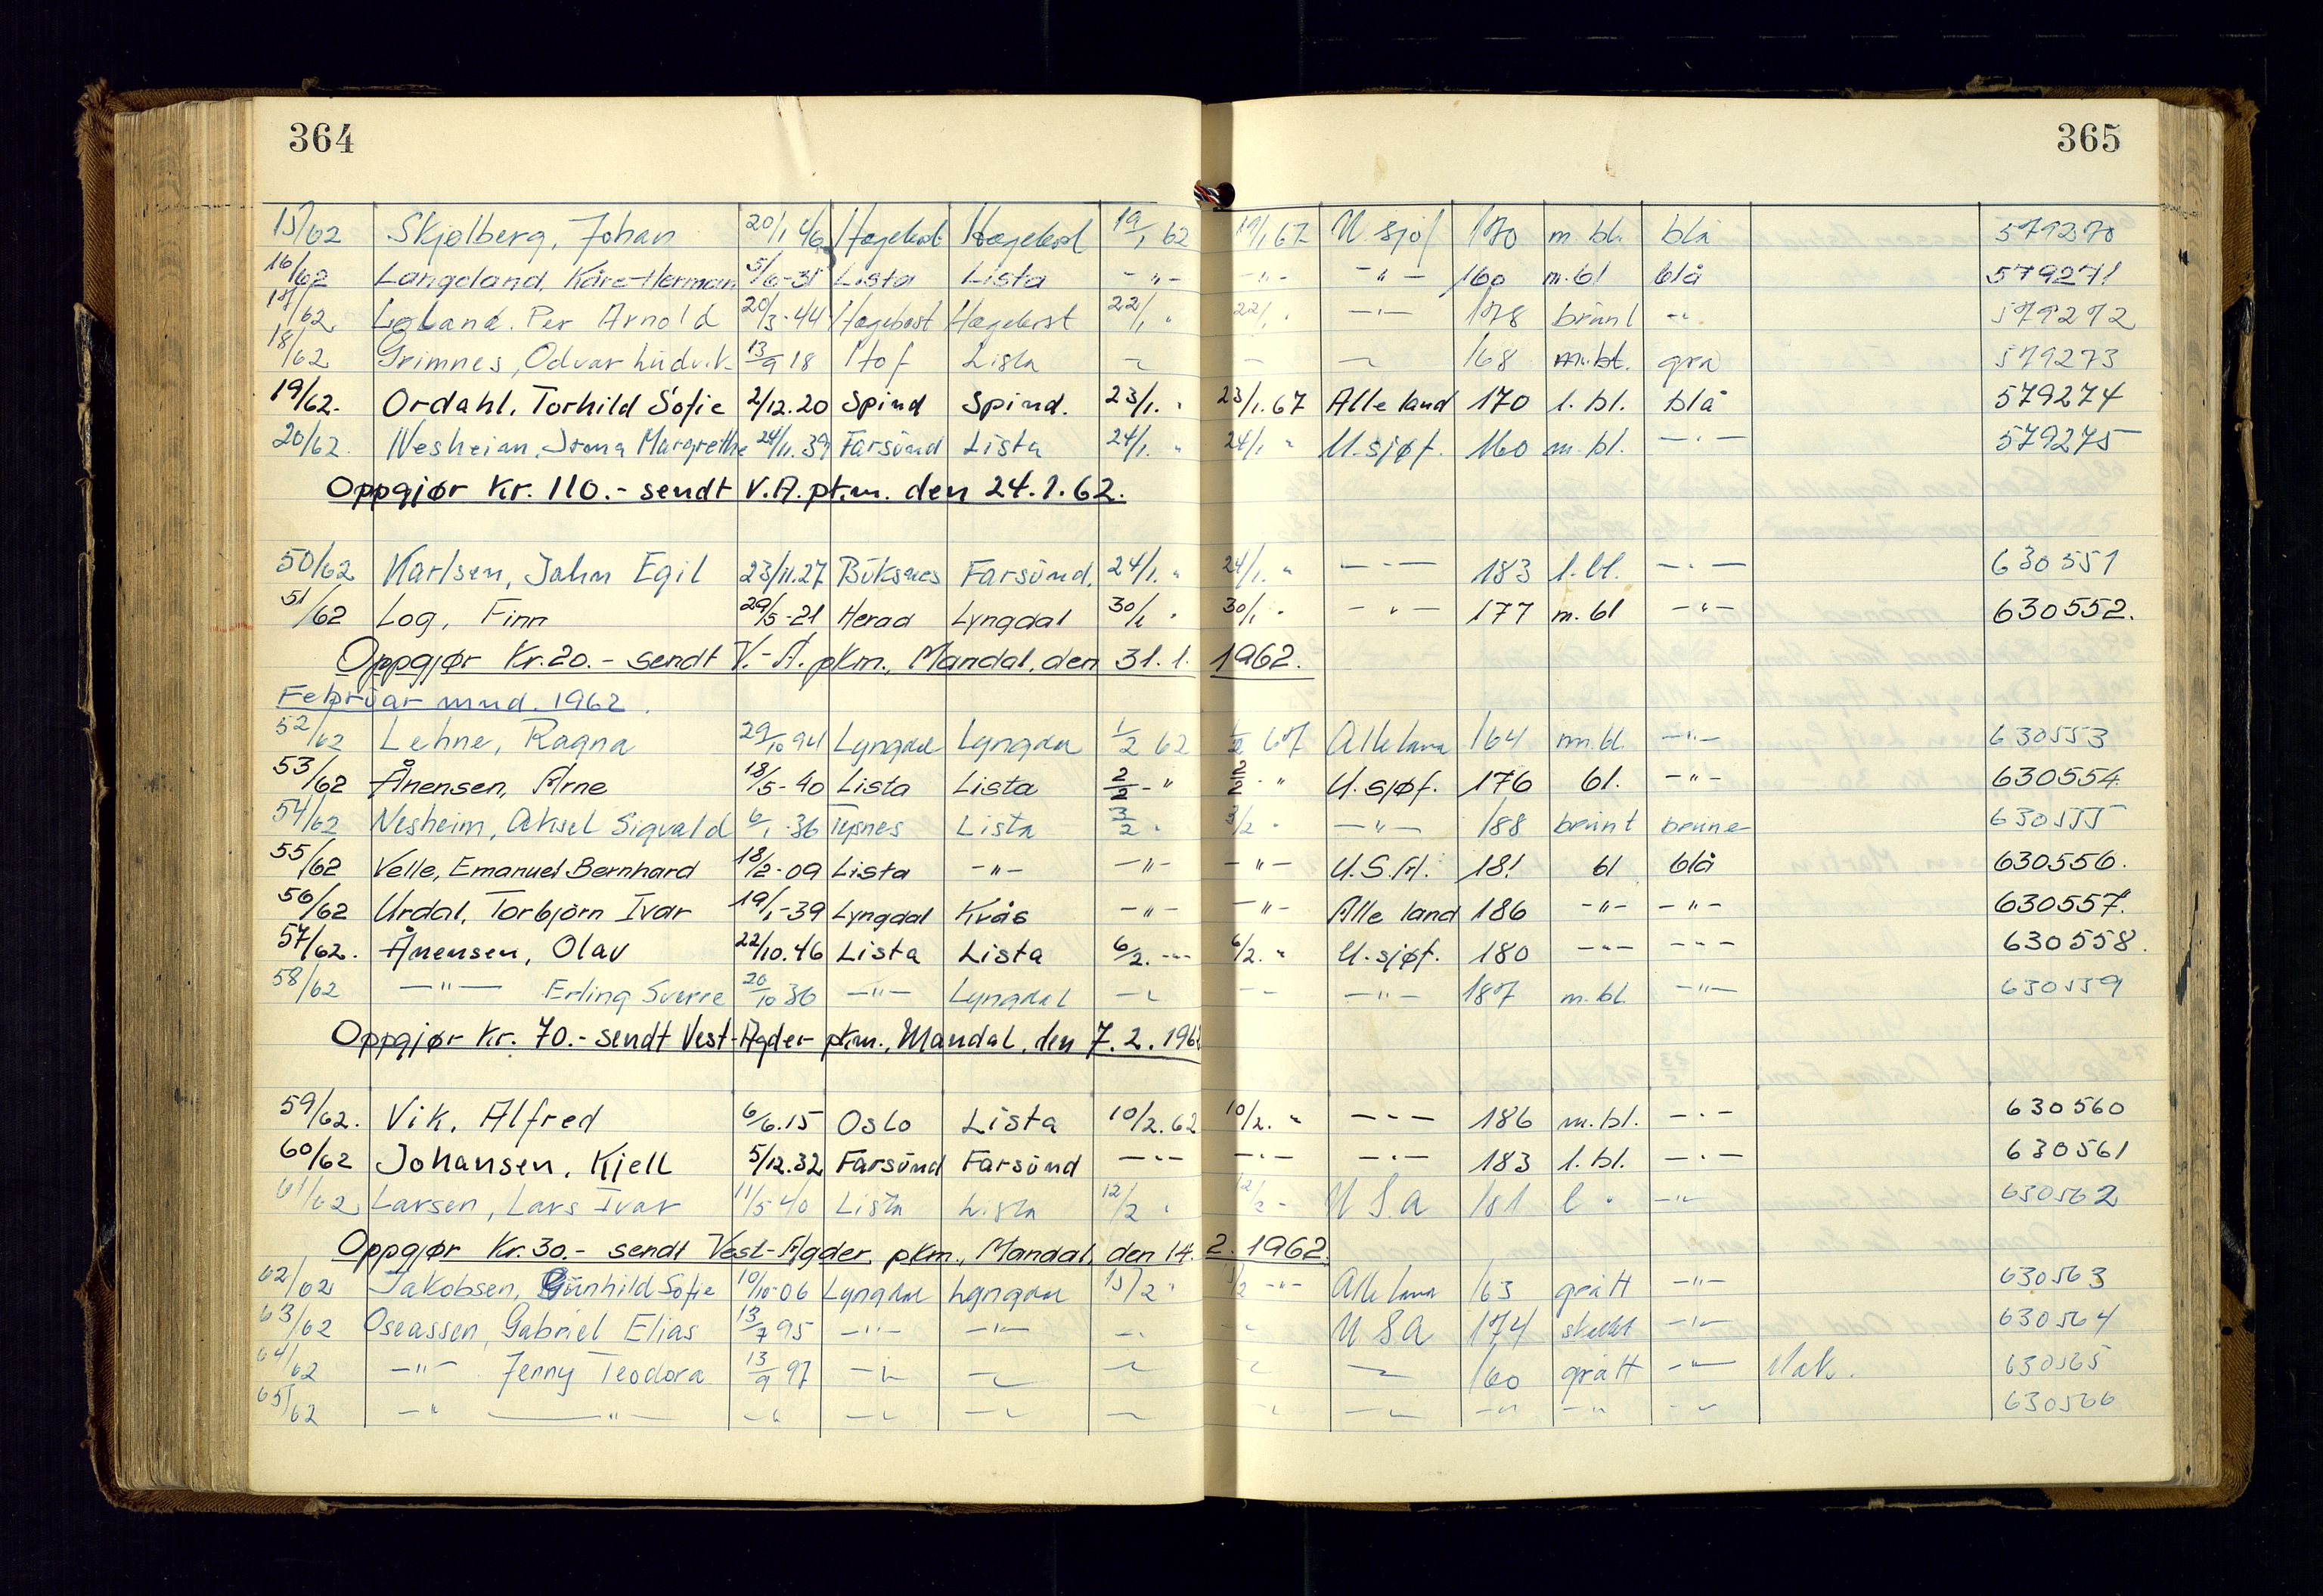 364
365
15/62 Skjølberg, Johan 20/1 46 Hægebost Hægebost 19/1 62 19/1 67 U. sjøf 170 m. bl. blå 579270
16/62 Langeland, Kåre Herman 5/6-35 Lista Lista -"- -"- -"- 160 m. bl blå 579271
17/62 Loland. Per Arnold 20/3-44 Hægebost Hægebost 22/1 " 22/1 " -"- 178 brunl -"- 579272
18/62 Grimnes, Odvar Ludvik 13/9 18 Hof Lista -"- -"- -"- 168 m. bl. grå 579273
19/62. Ordahl, Torhild Sofie 2/12.20 Spind Spind. 23/1. " 23/1. 67 Alle land 170 l. bl. blå 579274
20/62. Nesheim, Irma Margrethe 24/11.39 Farsund Lista 24/1. " 24/1 " U. sjøf. 160 m. bl. -"- 579275
Oppgjør Kr. 110.- sendt V.A. pkm. den 24.1.62.
50/62 Karlsen, John Egil 23/11.27 Buksnes Farsund. 24/1. " 24/1. " -"- 183 l. bl. -"- 630551
51/62 Log, Finn 29/5-21 Herad Lyngdal 30/1 " 30/1 " -"- 177 m. bl -"- 630552.
Oppgjør Kr. 20.- sendt V.-A. pkm., Mandal, den 31.1. 1962.
Februar mnd. 1962.
52/62 Lehne, Ragna 29/10 94 Lyngdal Lyngdal 1/2 62 1/2 67 Alle land 164 m. bl. -"- 630553
53/62 Ånensen, Arne 18/5-40 Lista Lista 2/2-" 2/2 - " U. sjøf. 176 bl. -"- 630554
54/62 Nesheim, Aksel Sigvald 6/1-36 Tysnes Lista 3/2 " 3/2 " -"- 188 brunt brune 630555
55/62 Velle, Emanuel Bernhard 18/2-09 Lista -"- -"- -"- U.S.A. 181 bl blå 630556.
56/62 Urdal, Torbjørn Ivar 19/1-39 Lyngdal Kvås -"- -"- Alle land 186 -"- -"- 630557.
57/62. Ånensen, Olav 22/10.46 Lista Lista 6/2. -"- 6/2. " U. sjøf. 180 -"- -"- 630558.
58/62 -"- Erling Sverre 20/10 36 -"- Lyngdal -"- -"- -"- 187 m. bl. -"- 630559
Oppgjør Kr. 70.- sendt Vest-Agder pkm., Mandal, den 7.2.1962
59/62. Vik, Alfred 6/6.15 Oslo Lista 10/2.62 10/2. " -"- 186 m. bl. -"- 630560
60/62 Johansen, Kjell 5/12.32 Farsund Farsund -"- -"- -"- 183 l. bl. -"- 630561
61/62 Larsen, Lars Ivar 11/5 40 Lista Lista 12/2 " 12/2 - U S. A 181 l " -"- 630562
Oppgjør Kr. 30.- sendt Vest-Agder, pkm., Mandal, den 14. 2. 1962.
62/62 Jakobsen, Gunhild Sofie 10/10-06 Lyngdal Lyngdal 15/2 " 15/2 -"- Alle land 163 grått -"- 630563
63/62 Oseassen, Gabriel Elias 13/7 95 -"- -"- -"- -"- U S A 174 -"- 630564
64/62 -"- Jenny Teodora 13/9 97 -"- -"- -"- -"- -"- 160 grått -"- Mak. 630565
65/62 -"- -"- -"- -"- -"- -"- -"- -"- -"- -"- -"- 630566